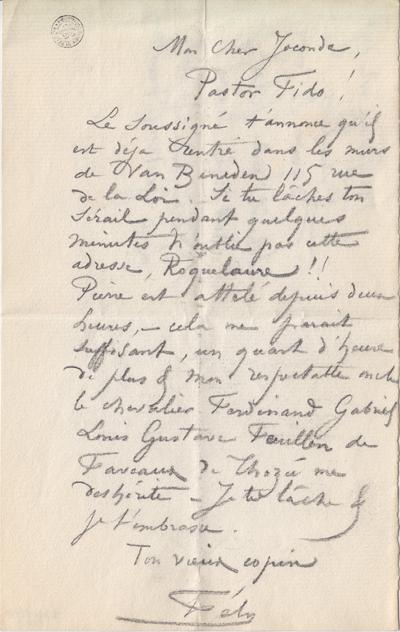 Mon cher Joconde,
Pastor Fido !
Le soussigné t'annonce qu'il
est déja rentré dans les murs
de Van Beneden 115 rue
de la Loi. Si tu lâches ton
Sérail pendant quelques
minutes n'oublie pas cette
adresse, Roquelaure !!
Pierre est attelé depuis deux
heures, – cela me parait
suffisant, un quart d'heure
de plus & mon respectable oncle
le chevalier Ferdinand Gabriel
Louis Gustave Feuillen de
Faveaux de Thozée me
deshérite – Je te lâche &
je t'embrasse.
Ton vieux copin
Fély